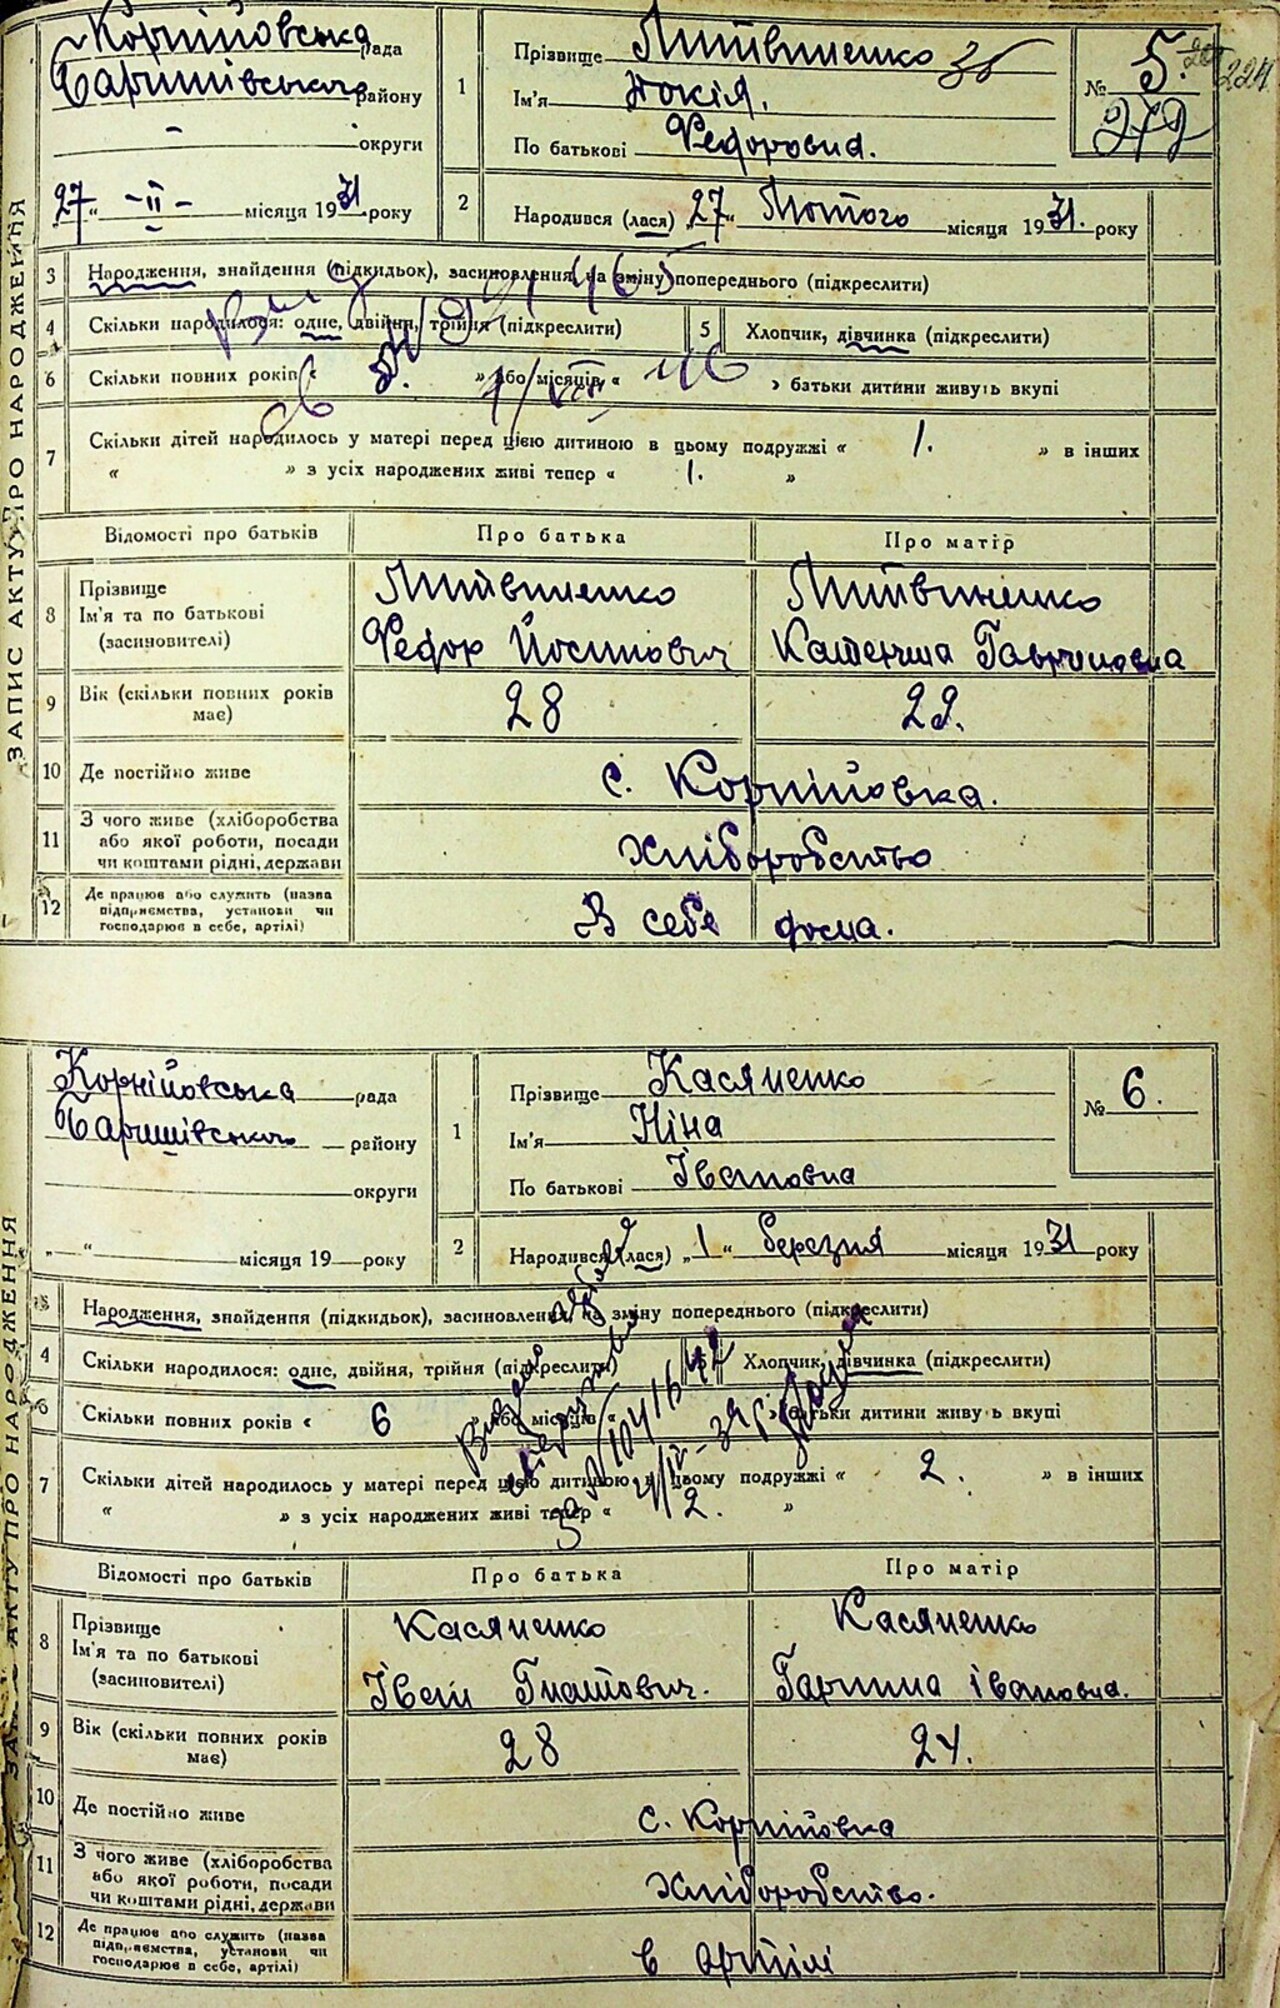 ЗАПИС АКТУ ПРО НАРОДЖЕННЯ
Корнійовська рада
Баришівського району
- округи
27 " - II - місяця 1931 року
1
Прізвище Литвиненко
Ім'я Докія.
По батькові Федоровна.
№ 5.
272
224
2
Народився (лася) „27" Лютого місяця 1931. року
3 Народження, знайдення (підкидьок), засиновлення, на зміну попереднього (підкреслити)
4 Скільки народилося: одне, двійня, трійня (підкреслити)
5 Хлопчик, дівчинка (підкреслити)
6 Скільки повних років « 5. » або місяців « » батьки дитини живуть вкупі
7 Скільки дітей народилось у матері перед цією дитиною в цьому подружжі « 1. » в інших
« » з усіх народжених живі тепер « 1. »
Відомості про батьків Про батька Про матір
8 Прізвище
Ім'я та по батькові
(засиновителі)
Литвиненко
Федор Йосипович
Литвиненко
Катерина Гавриловна
9 Вік (скільки повних років
має)
28
29.
10 Де постійно живе с. Корнійовка.
11 З чого живе (хліборобства
або якої роботи, посади
чи коштами рідні, держави
Хліборобство
12 Де працює або служить (назва
підприємства, установи чи
господарює в себе, артілі)
В себе дома.
ЗАПИС АКТУ ПРО НАРОДЖЕННЯ
Корнійовська рада
Баришівського району
округи
„ " місяця 19 року
1
Прізвище Касяненко
Ім'я Ніна
По батькові Івановна
№ 6.
2
Народився (лася) „1" березня місяця 1931 року
3 Народження, знайдення (підкидьок), засиновлення, на зміну попереднього (підкреслити)
4 Скільки народилося: одне, двійня, трійня (підкреслити)
5 Хлопчик, дівчинка (підкреслити)
6 Скільки повних років « 6 » або місяців « » батьки дитини живуь вкупі
7 Скільки дітей народилось у матері перед цією дитиною в цьому подружжі « 2. » в інших
« » з усіх народжених живі тепер « 2. »
Відомості про батьків Про батька Про матір
8 Прізвище
Ім'я та по батькові
(засиновителі)
Касяненко
Іван Гнатович.
Касяненко
Гарпина Івановна.
9 Вік (скільки повних років
має)
28
24.
10 Де постійно живе с. Корнійовка
11 З чого живе (хліборобства
або якої роботи, посади
чи коштами рідні, держави
Хліборобство.
12 Де працює або служить (назва
підприємства, установи чи
господарює в себе, артілі)
в артілі